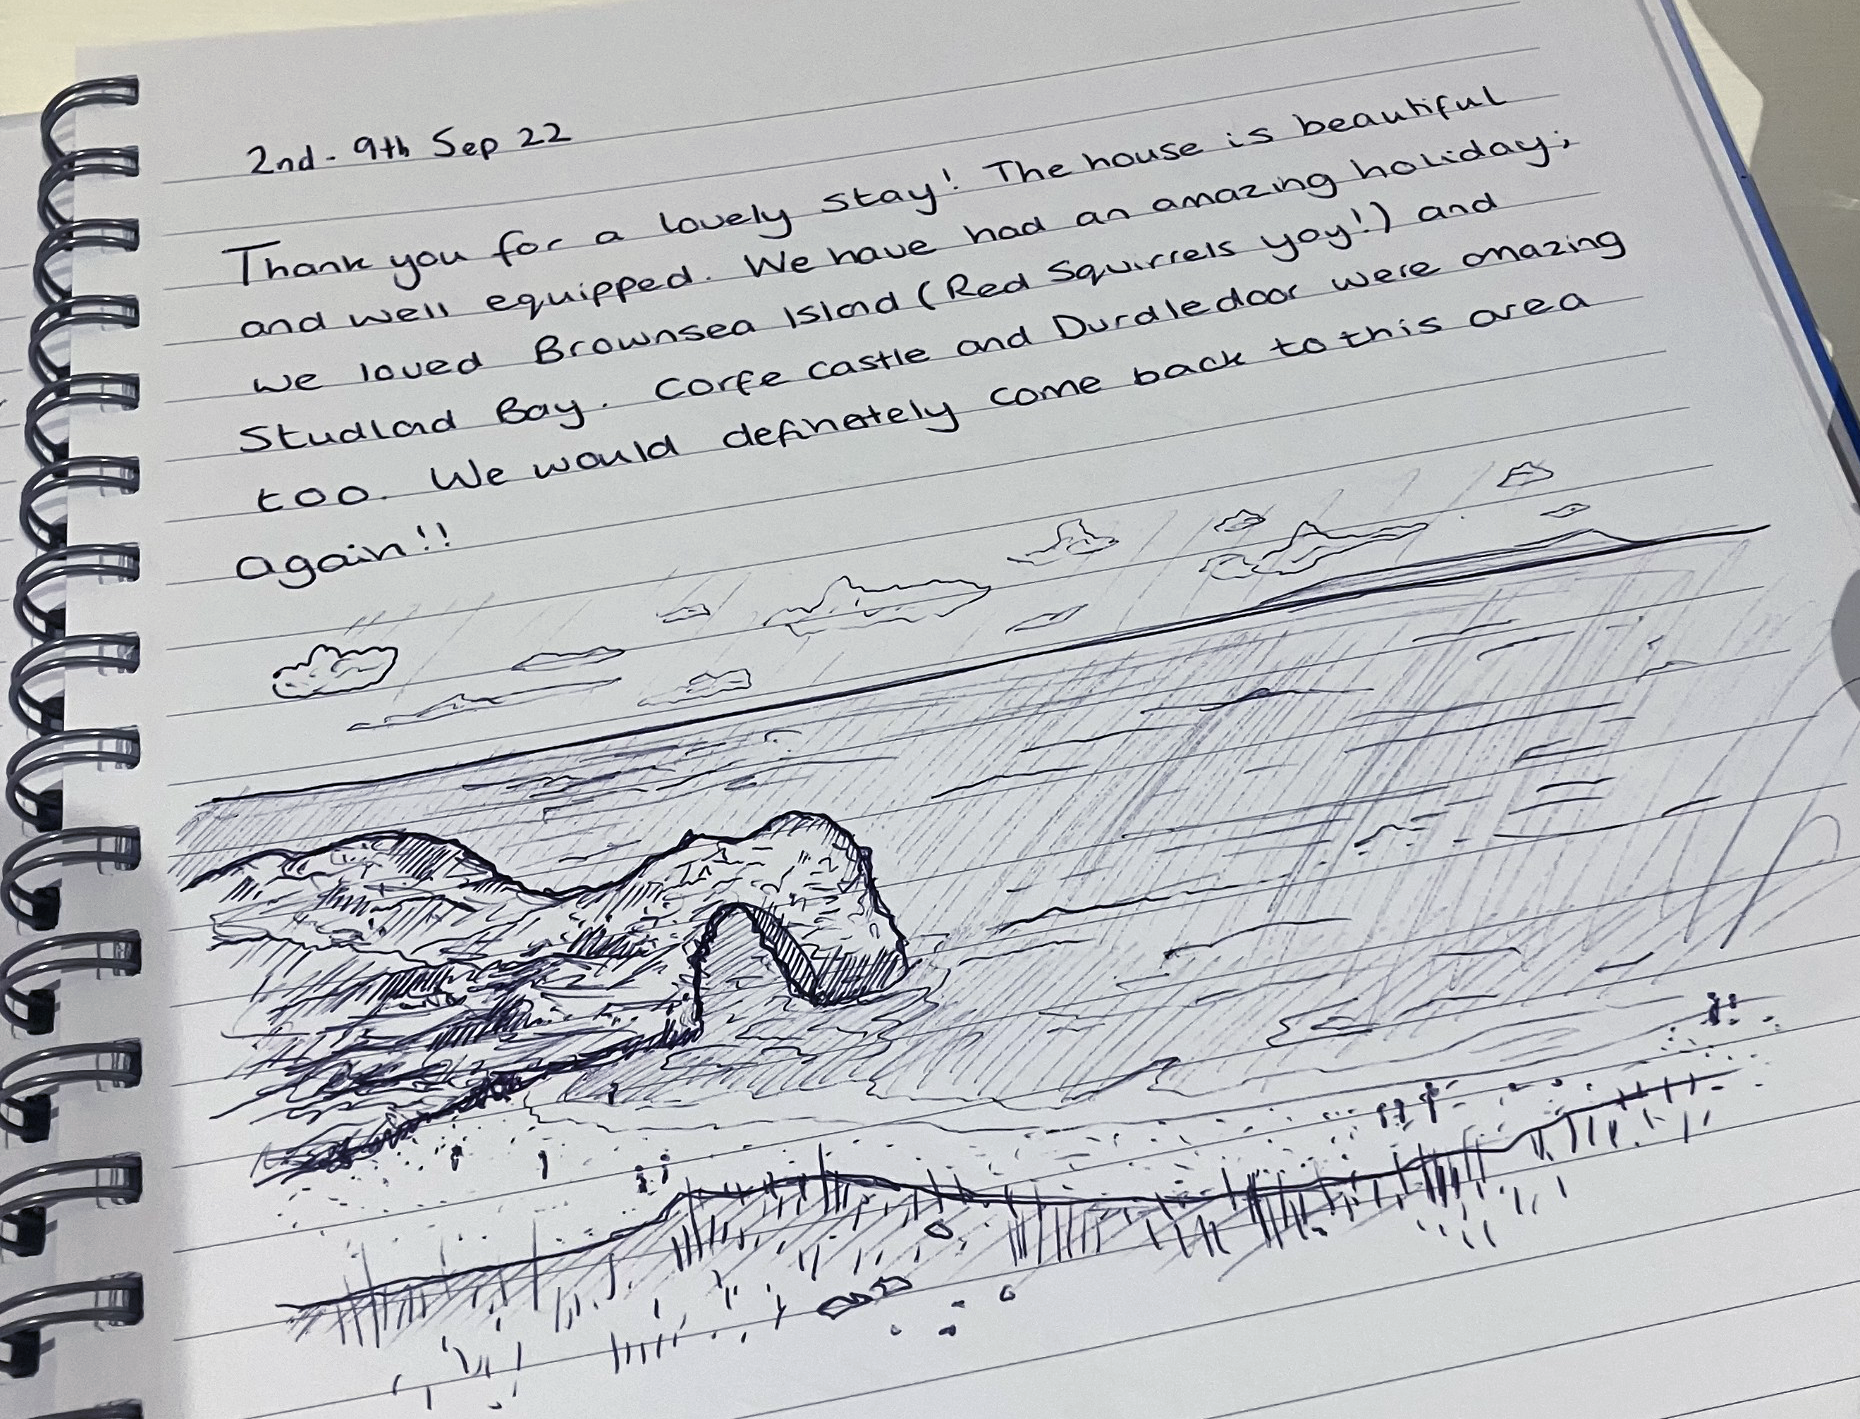 2nd - 9th Sep 22
Thank you for a lovely stay! The house is beautiful
and well equipped. We have had an amazing holiday;
we loved Brownsea Island (Red Squirrels yay!) and
Studland Bay. Corfe castle and Durdledoor were amazing
too. We would definetely come back to this area
again!!